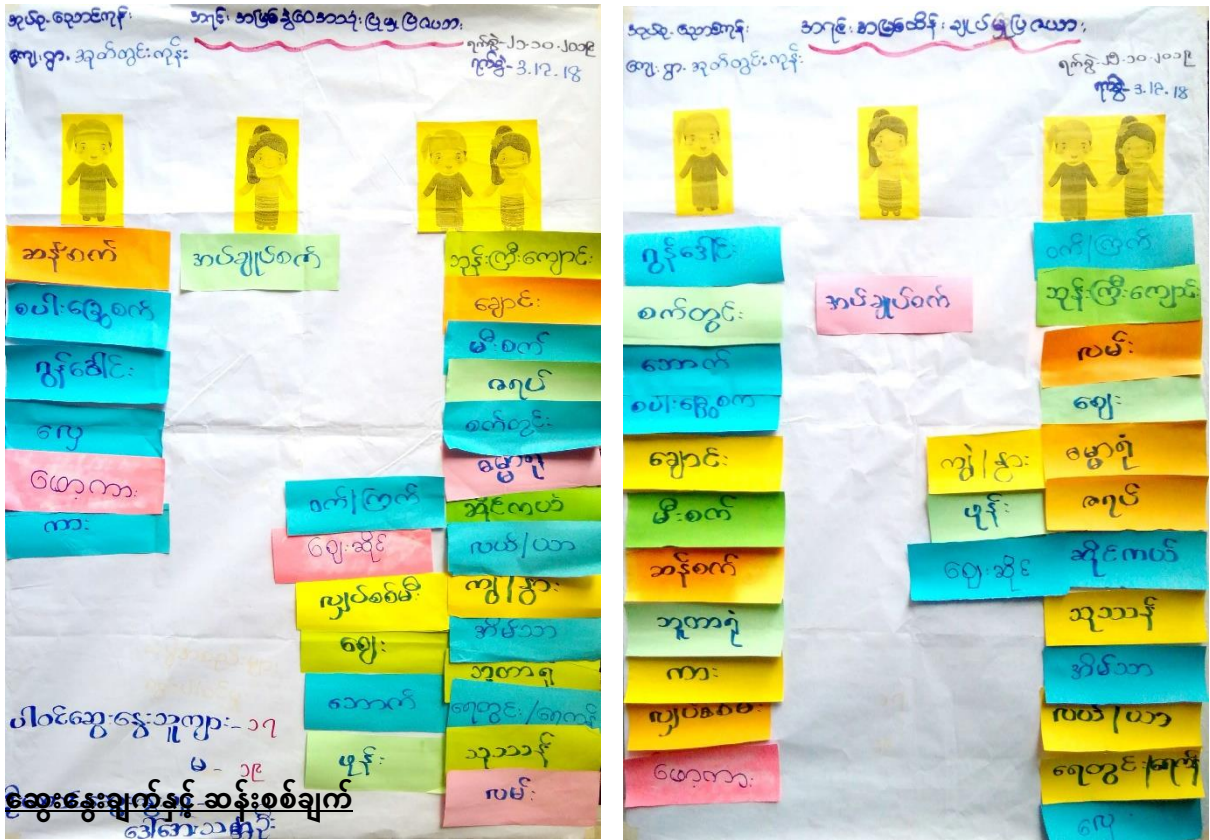 အုပ်စု- ညောင်ကုန်း
အရင်းအမြစ်ခွဲဝေအသုံးပြုမှုပြဇယား
ကျေးရွာ- အုတ်တွင်းကုန်း
ရက်စွဲ- ၂၁-၁၀-၂၀၁၉
ရက်စွဲ- 3.12.18
ဆန်စက်
စပါးခြွေစက်
ဂွန်ဒေါင်း
လှေ
ဖော့ကား
ကား
အပ်ချုပ်စက်
ဝက်/ကြက်
ဈေးဆိုင်
လျှပ်စစ်မီး
ဈေး
ဘောက်
ဖုန်း
ဘုန်းကြီးကျောင်း
ချောင်း
မီးစက်
ဇရပ်
စက်တွင်း
ဓမ္မာရုံ
ဆိုင်ကယ်
လယ်/ယာ
ကျွဲ/နွား
အိမ်သာ
ဘူတာရုံ
ရေတွင်း/ရေကန်
သုဿာန်
လမ်း
ပါဝင်ဆွေးနွေးသူကျား- ၁၇
မ - ၁၉
ဆွေးနွေးချက်နှင့် ဆန်းစစ်ချက်
အုပ်စု- ညောင်ကုန်း
အရင်းအမြစ်ထိန်းချုပ်မှုပြဇယား
ကျေးရွာ- အုတ်တွင်းကုန်း
ရက်စွဲ- ၂၁-၁၀-၂၀၁၉
ရက်စွဲ- 3.12.18
ဂွန်ဒေါင်း
စက်တွင်း
ဘောက်
စပါးခြွေစက်
ချောင်း
မီးစက်
ဆန်စက်
ဘူတာရုံ
ကား
လျှပ်စစ်မီး
ဖော့ကား
အပ်ချုပ်စက်
ကျွဲ/နွား
ဖုန်း
ဈေးဆိုင်
ဝက်/ကြက်
ဘုန်းကြီးကျောင်း
လမ်း
ဈေး
ဓမ္မာရုံ
ဇရပ်
ဆိုင်ကယ်
သုဿာန်
အိမ်သာ
လယ်/ယာ
ရေတွင်း/ရေကန်
လှေ